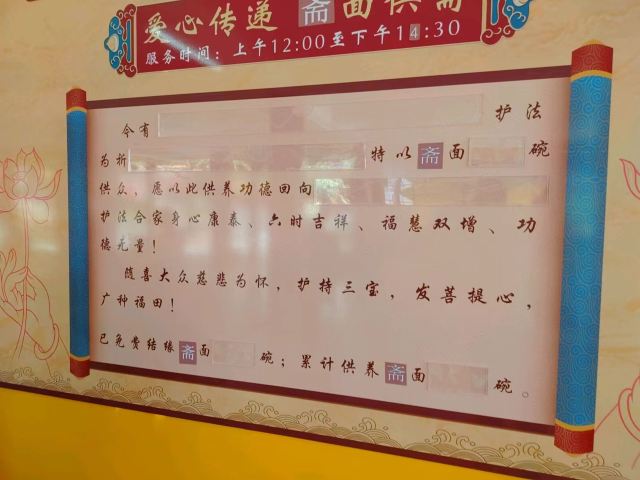 爱心传递 斋面供斋
服务时间：上午12:00至下午14:30
今有 护法
为祈 特以斋面 碗
供众，愿以此供养功德回向
护法合家身心康泰、六时吉祥、福慧双增、功
德无量！
随喜大众慈悲为怀，护持三宝，发菩提心，
广种福田！
已免费结缘斋面 碗；累计供养斋面 碗。